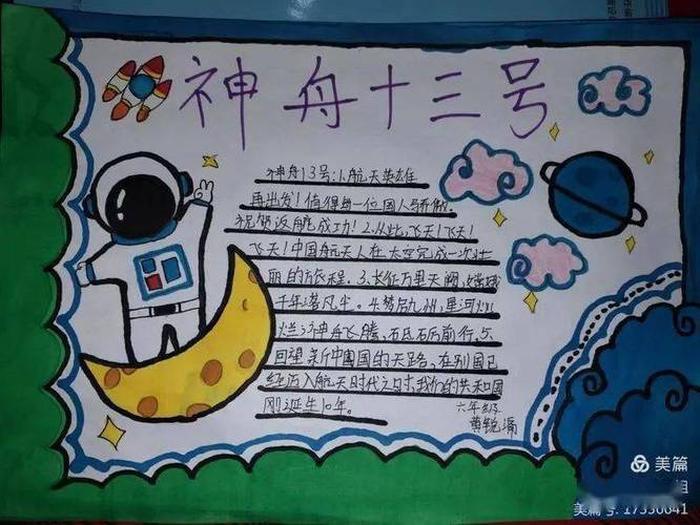 神舟十三号
神舟13号:1.航天英雄
再出发!值得每一位国人骄傲.
祝贺返航成功!2.从此,飞天!飞天!
飞天!中国航天人在太空完成一次壮
丽的旅程.3.长征万里天阙,嫦娥
千年落凡尘.4.梦启九州,星河灿
烂,神舟飞腾,砥砺前行.5.
回望新中國国的天路,在别国已
经迈入航天时代之时,我们的共和国
刚诞生10年。
六年级
黄锐
美篇
美篇号:17330641